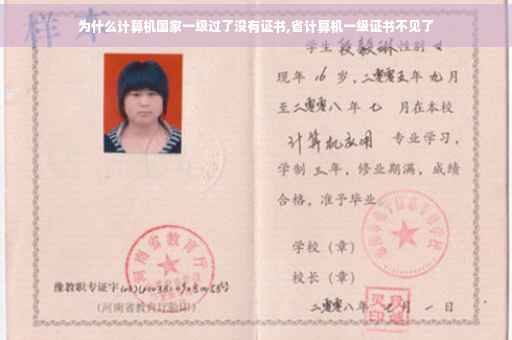 为什么计算机国家一级过了没有证书,省计算机一级证书不见了
样本
学生段毅琳性别女
现年16岁,二零零五年九月
至二零零八年七月在本校
计算机应用 专业学习,
学制三年,修业期满,成绩
合格,准予毕业
学校(章)
校长(章)
二零零八年七月一日
河南省教育厅
豫教职专证字
(河南省教育厅验印)